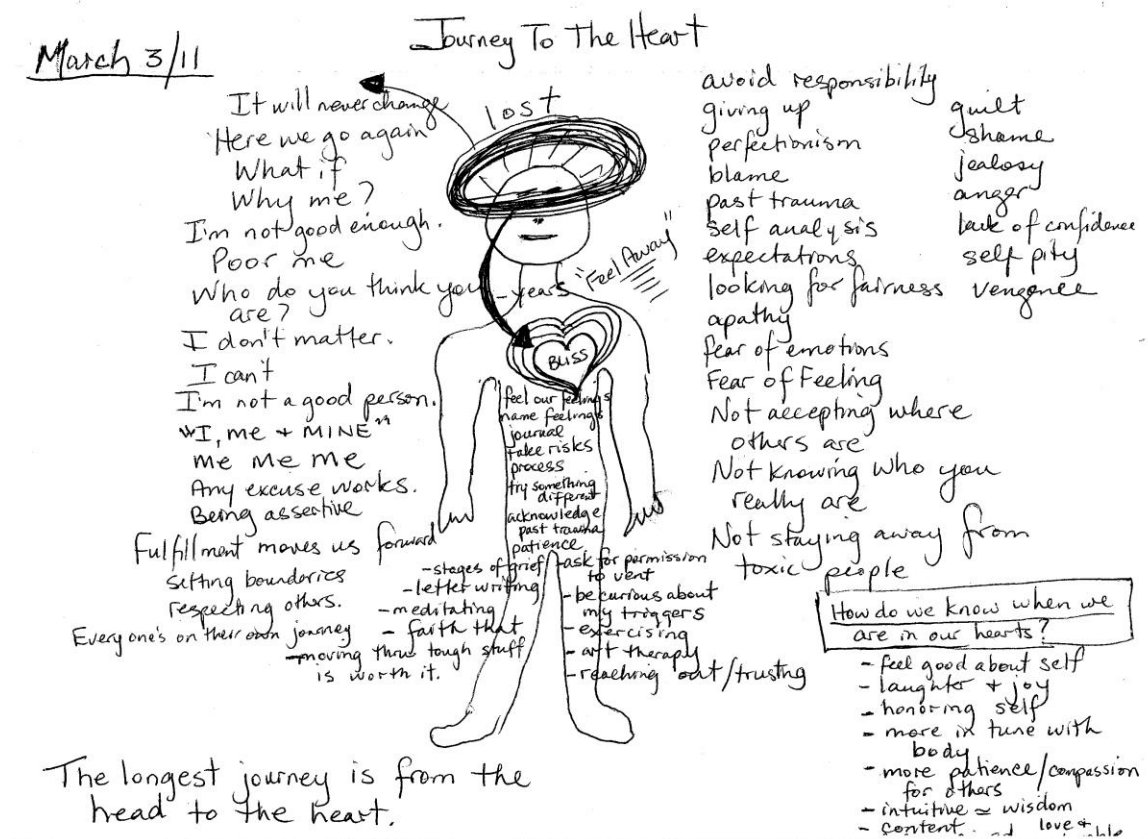 Journey To The Heart
March 3/11
lost
It will never change
Here we go again
What if
Why me?
I'm not good enough.
Poor me
Who do you think you
are?
I don't matter.
I can't
I'm not a good person.
"I, me + MINE"
me me me
Any excuse works.
Being assertive
Fulfillment moves us forward
setting boundaries
respecting others.
Everyone's on their own journey
- years
"Feel Away"
BLISS
feel our feelings
name feelings
journal
take risks
process
try something
different
acknowledge
past trauma
patience
- stages of grief
- letter writing
- meditating
- faith that
- moving thru tough stuff
is worth it.
- ask for permission
to vent
- be curious about
my triggers
- exercising
- art therapy
- reaching out/trusting
avoid responsibility
giving up
perfectionism
blame
past trauma
self analysis
expectations
looking for fairness
apathy
fear of emotions
Fear of Feeling
Not accepting where
others are
Not knowing who you
really are
Not staying away from
toxic people
guilt
shame
jealosy
anger
lack of confidence
self pity
vengence
How do we know when we
are in our hearts?
- feel good about self
- laughter + joy
- honoring self
- more in tune with
body
- more patience/compassion
for others
- intuitive ≃ wisdom
- content
love +
The longest journey is from the
head to the heart.